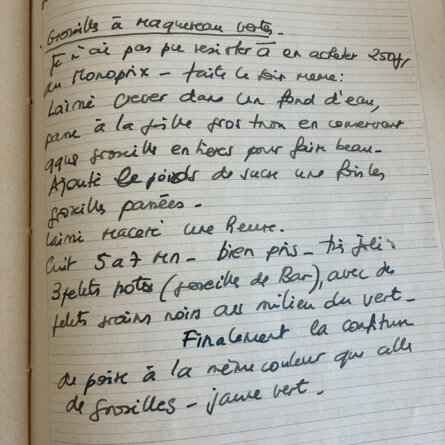 Groseilles à Maquereau vertes.
Je n'ai pas pu resister à en acheter 250gr
au Monoprix - faite le soir meme :
Laissé crever dans un fond d'eau,
passé à la grille gros trou en conservant
qques groseilles entieres pour faire beau.
Ajouté le poids de sucre une fois les
groseilles passées.
Laissé maceré une heure.
Cuit 5 a 7 mn - bien pris - très joli :
3 petits pots (groseille de Bar), avec de
petits grains noirs au milieu du vert -
Finalement la confiture
de poire à la même couleur que celle
de groseilles - jaune vert.